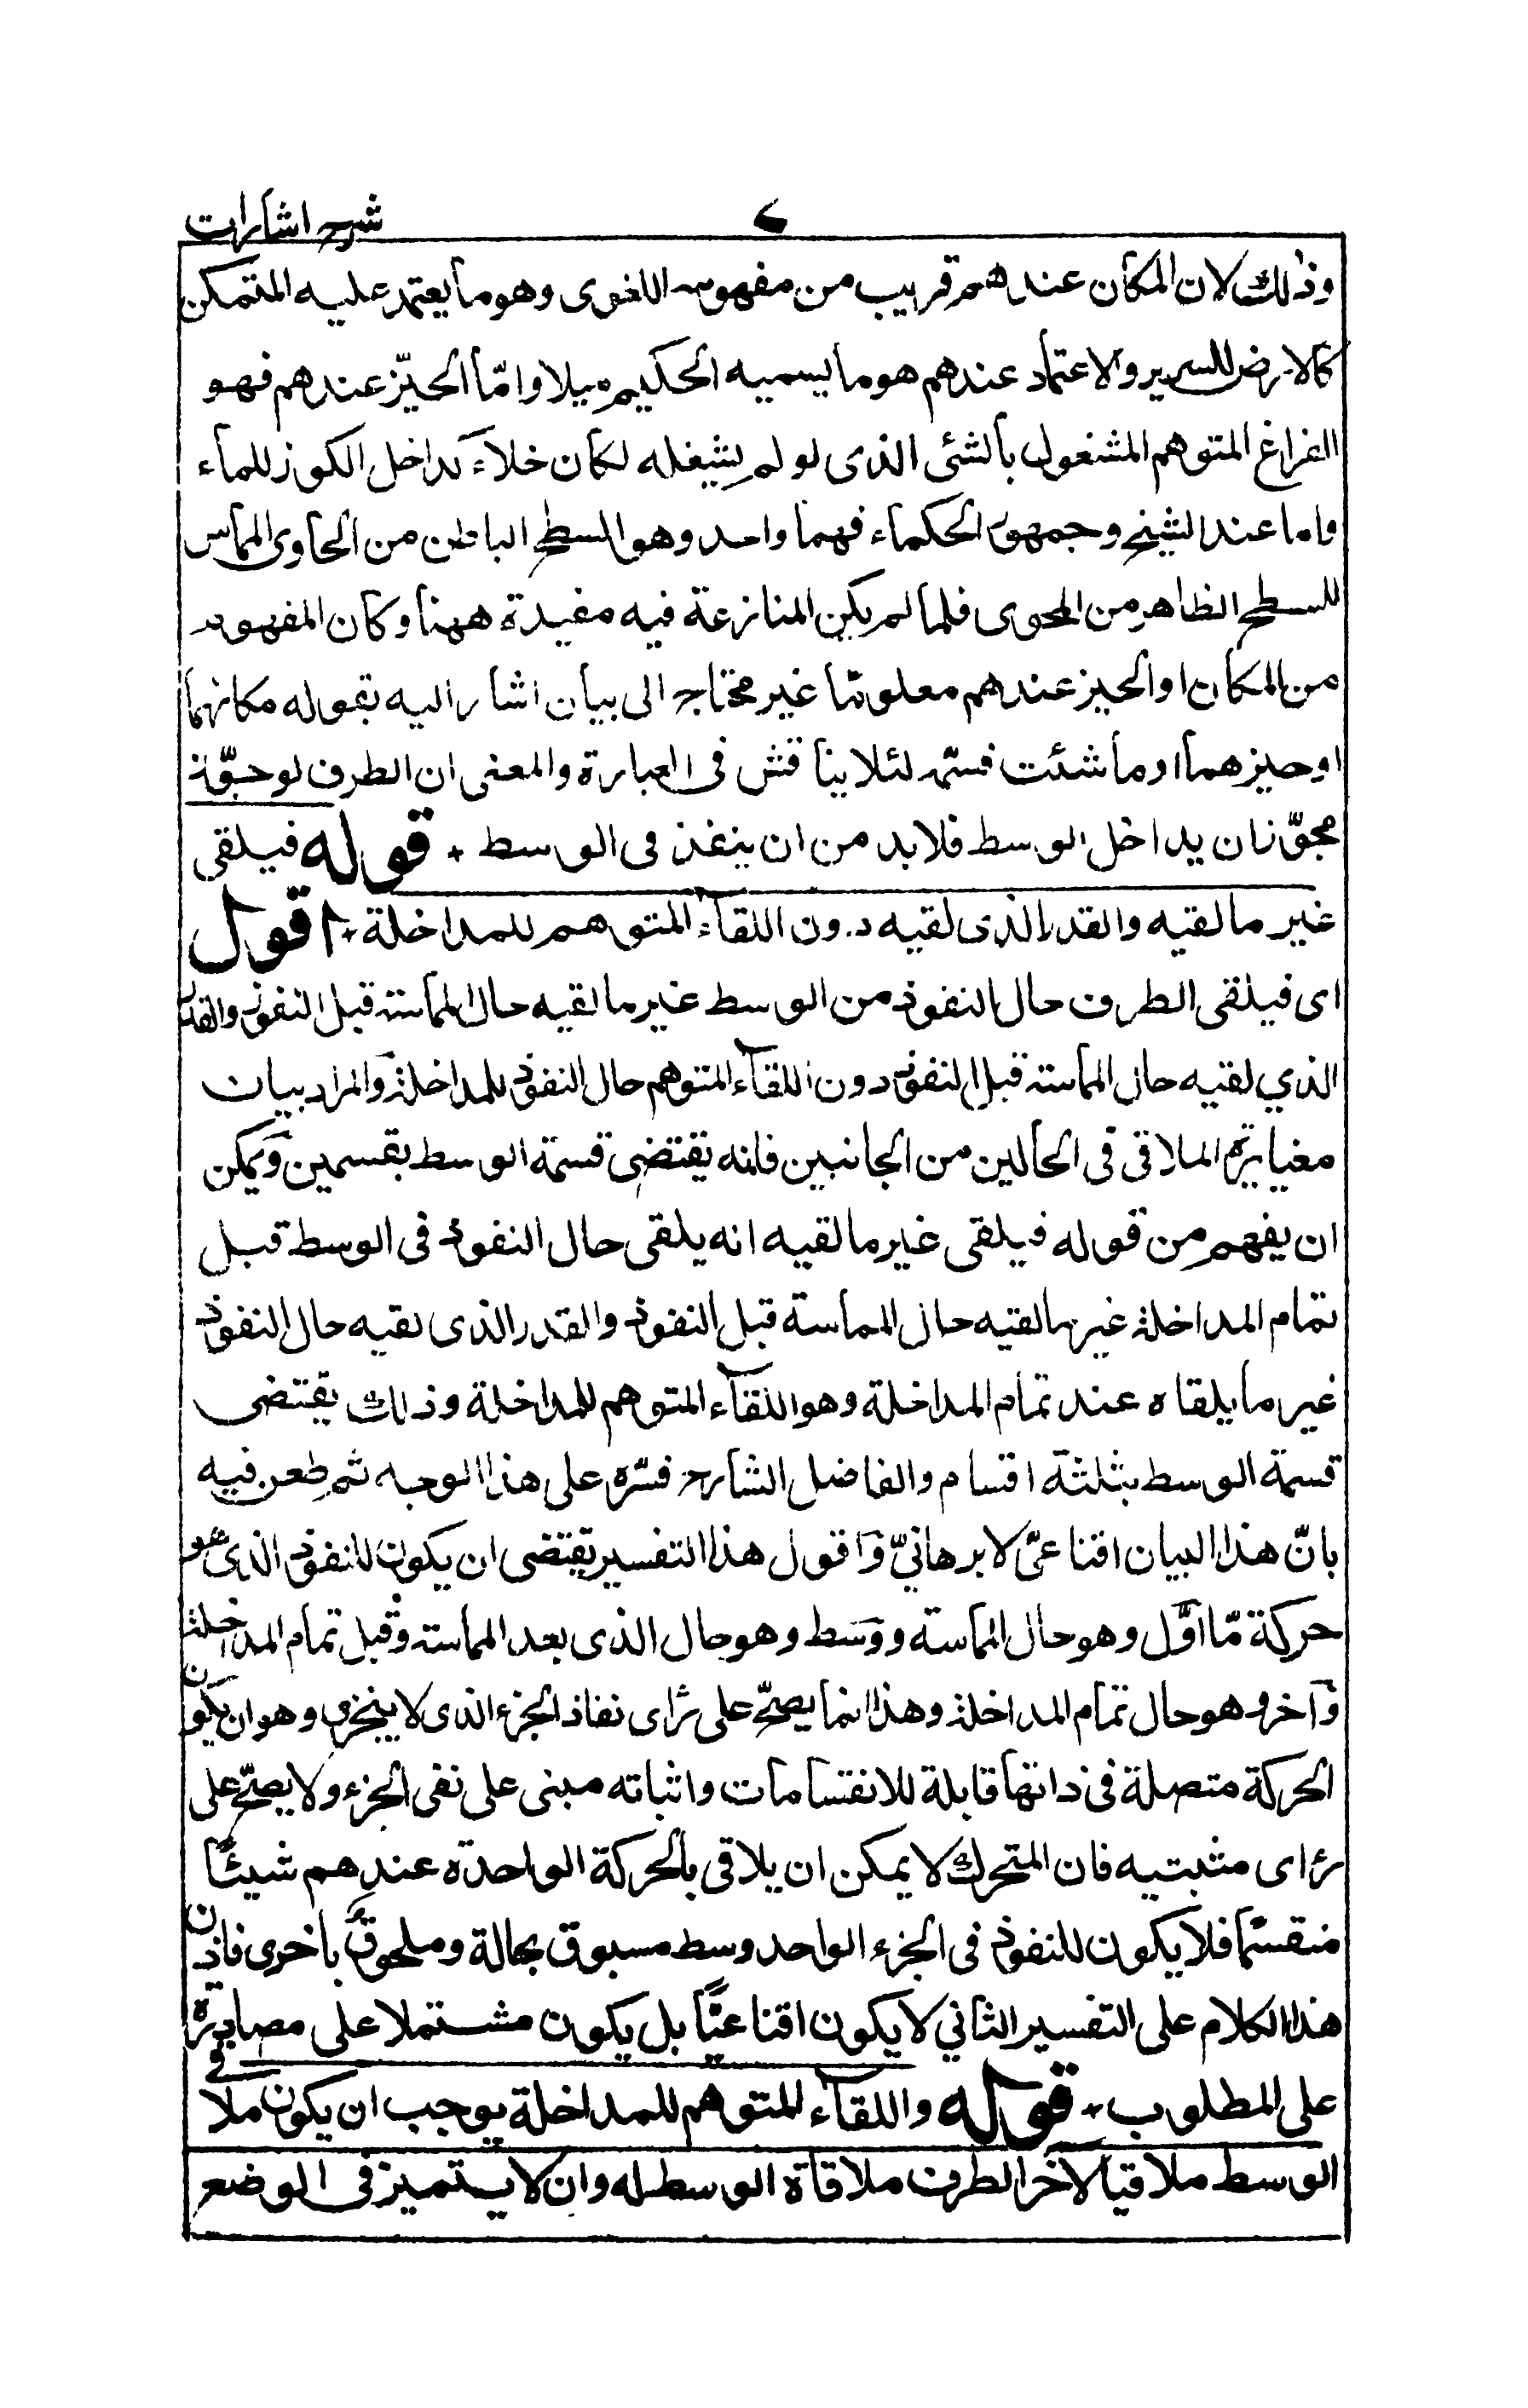 شرح اشارات
وذلك لان المكان عندهم قريب من مفهومه اللغوى وهو ما يعتمد عليه المتمكن
كالارض للسرير والاعتماد عندهم هو ما يسميه الحكيم ميلا وامّا الحيّز عندهم فهو
الفراغ المتوهم المشغول بالشئى الذى لو لم يشغله لكان خلاءً كداخل الكوز للماء
واما عند الشيخ وجمهور الحكماء فهما واحد وهو السطح الباطن من الحاوى المماس
للسطح الظاهر من المحوى فلما لم يكن المنازعة فيه مفيدة ههنا وكان المفهوم
من المكان او الحيز عندهم معلومًا غير محتاج الى بيان اشار اليه بقوله مكانهما
او حيزهما او ما شئت فسمّه لئلا يناقش فى العبارة والمعنى ان الطرف لو جوّز
مجوّز ان يداخل الوسط فلابد من ان ينفذ فى الوسط + قوله فيلقى
غير ما لقيه والقدر الذى لقيه دون اللقآء المتوهم للمداخلة + اقول
اى فيلقى الطرف حال النفوذ من الوسط غير ما لقيه حال المماسة قبل النفوذ والقدر
الذي لقيه حال المماسة قبل النفوذ دون اللقآء المتوهم حال النفوذ للمداخلة والمراد بيان
مغايرة الملاقى فى الحالين من الجانبين فانه يقتضى قسمة الوسط بقسمين ويمكن
ان يفهم من قوله فيلقى غير ما لقيه انه يلقى حال النفوذ فى الوسط قبل
تمام المداخلة غير ما لقيه حال المماسة قبل النفوذ والقدر الذى لقيه حال النفوذ
غير ما يلقاه عند تمام المداخلة وهو اللقآء المتوهم للمداخلة وذلك يقتضى
قسمة الوسط بثلثة اقسام والفاضل الشارح فسّره على هذا الوجه ثم طعن فيه
بانّ هذا البيان اقناعىّ لا برهانيّ واقول هذا التفسير يقتضى ان يكون للنفوذ الذى هو
حركة مّا اوّل وهو حال المماسة ووسط وهو حال الذى بعد المماسة وقبل تمام المداخلة
وآخر وهو حال تمام المداخلة وهذا انما يصحّ على رأى نفاة الجزء الذى لا يتجزى وهو ان يكون
الحركة متصلة فى ذاتها قابلة للانقسامات واثباته مبنى على نفى الجزء ولا يصحّ على
رأى مثبتيه فان المتحرك لا يمكن ان يلاقى بالحركة الواحدة عندهم شيئًا
منقسمًا فلا يكون للنفوذ فى الجزء الواحد وسط مسبوق بحالة وملحوق باخرى فاذن
هذا الكلام على التفسير الثاني لا يكون اقناعيًّا بل يكون مشتملا على مصادرة
على المطلوب + قوله واللقآء المتوهم للمداخلة يوجب ان يكون ملاقى
الوسط ملاقيا لآخر الطرف ملاقاة الوسط له وان لا يتميز فى الوضع